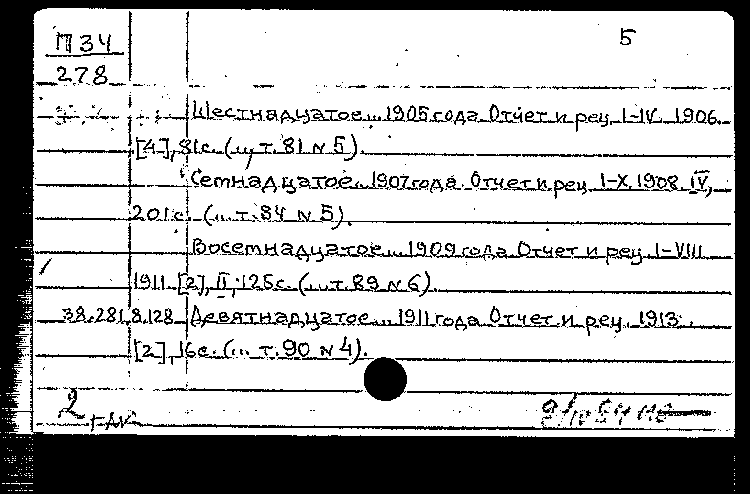 П34
278
5
Шестнадцатое... 1905 года. Отчет и рец. I-IV. 1906.
[4], 81с. (... т. 81 №5).
Семнадцатое... 1907 года. Отчет и рец. I-X. 1908. IV,
201с. (... т. 84 №5).
Восемнадцатое... 1909 года. Отчет и рец. I-VIII
1911. [2], II, 125с. (... т. 89 №6).
38.281.8.128 Девятнадцатое... 1911 года. Отчет и рец. 1913.
[2], 16с. (... т. 90 №4).
2